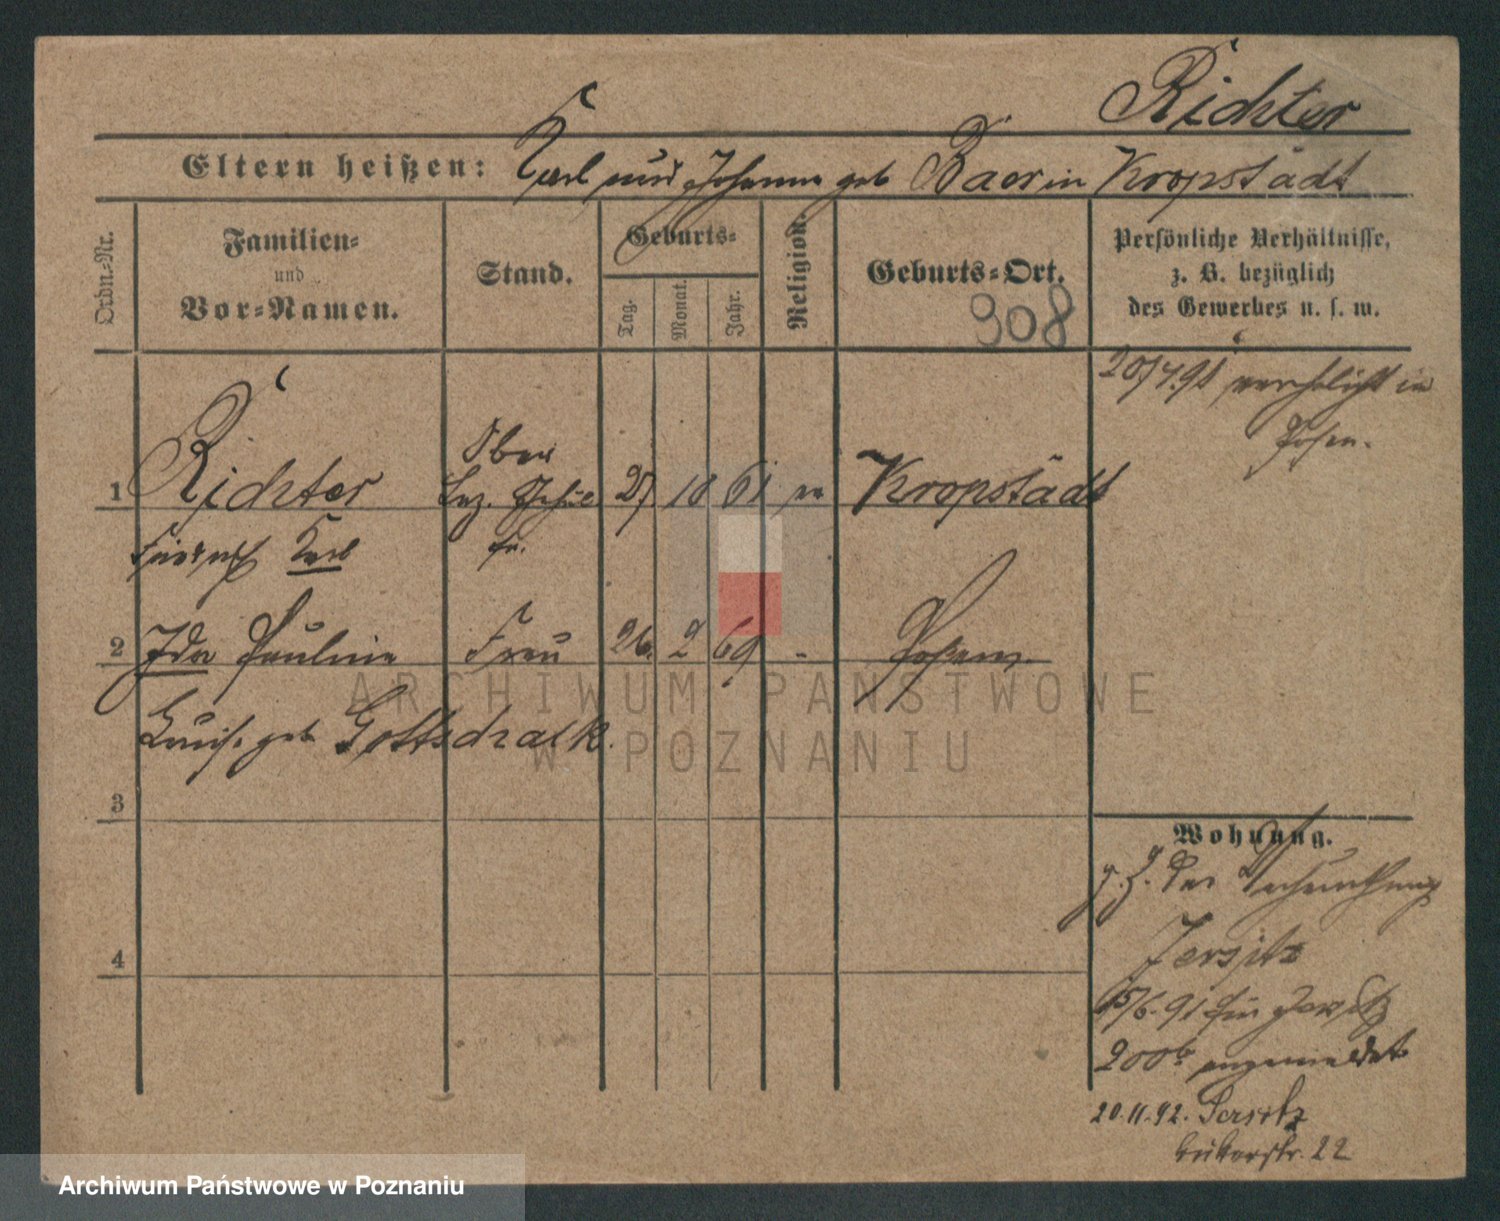 Richter
Eltern heißen: Karl und Johanne geb Baer in Kropstädt
Ordn.-Nr.
Familien-
und
Vor-Namen.
Stand.
Geburts-
Tag.
Monat.
Jahr.
Religion.
Geburts-Ort.
308
Persönliche Verhältnisse,
z. B. bezüglich
des Gewerbes u. s. w.
20/4.91 verehelicht in
Posen.
Ober
1 Richter Laz. Gehül 27 10 61 ev Kropstädt
Karl
fe.
2 Ida Pauline Frau 26. 2 69 - Posen
Luise geb Gottschalk.
3
4
Wohnung.
z. Z. der
Jersitz
15/6.91 für Jersitz
200b angemeldet
20.11.92. Jersitz
22
ARCHIWUM PAŃSTWOWE
W POZNANIU
Archiwum Państwowe w Poznaniu